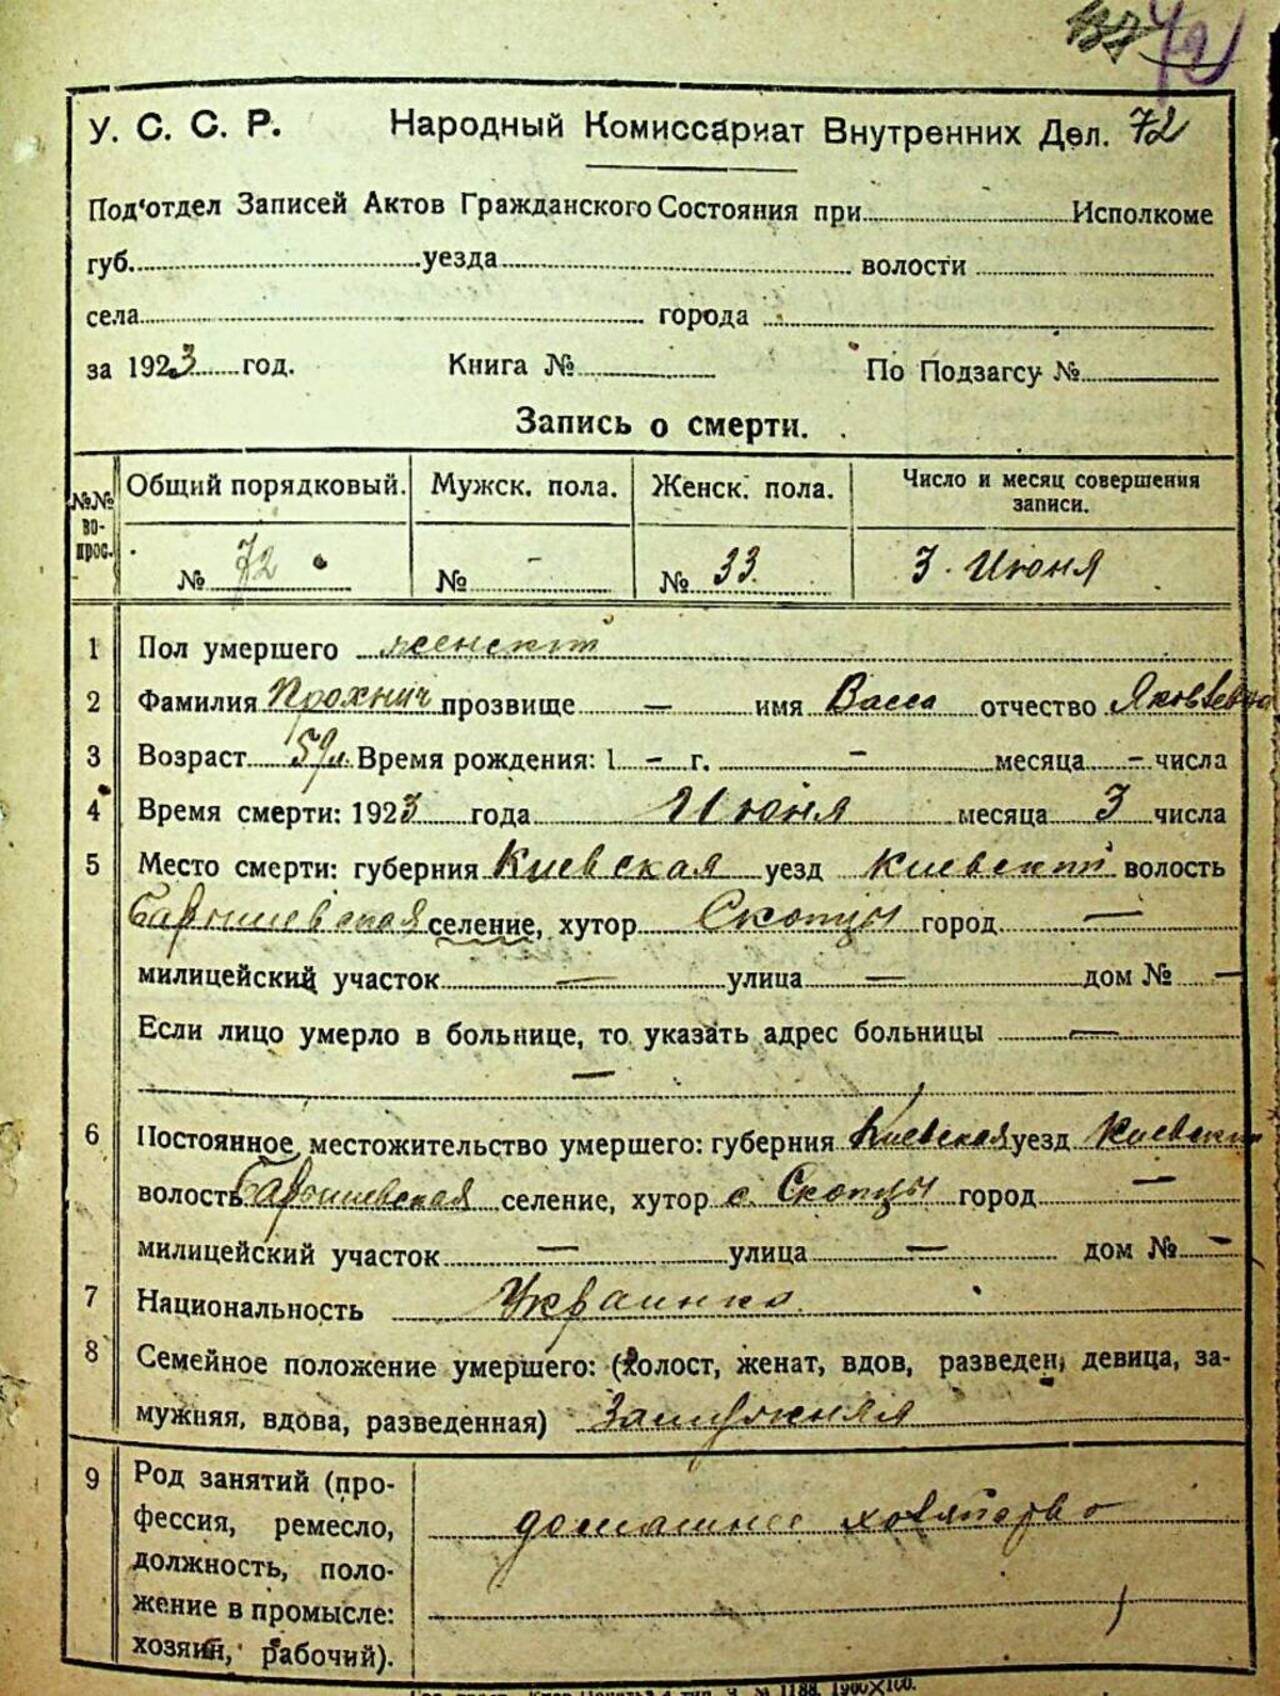 72
У. С. С. Р. Народный Комиссариат Внутренних Дел. 72
Под'отдел Записей Актов Гражданского Состояния при Исполкоме
губ. уезда волости
села города
за 1923 год. Книга № По Подзагсу №
Запись о смерти.
№№ вопрос. Общий порядковый. Мужск. пола. Женск. пола. Число и месяц совершения записи.
№ 72 № - № 33 3. Июня
1 Пол умершего женский
2 Фамилия Прохнич прозвище — имя Васса отчество Яковлевна
3 Возраст 59 л. Время рождения: 1 - г. - месяца - числа
4 Время смерти: 1923 года Июня месяца 3 числа
5 Место смерти: губерния Киевская уезд Киевский волость
Барышевская селение, хутор Скопцы город —
милицейский участок — улица — дом № —
Если лицо умерло в больнице, то указать адрес больницы —
—
6 Постоянное местожительство умершего: губерния Киевская уезд Киевский
волость Барышевская селение, хутор с. Скопцы город —
милицейский участок — улица — дом № -
7 Национальность Украинка
8 Семейное положение умершего: (холост, женат, вдов, разведен, девица, за-
мужняя, вдова, разведенная) Замужняя
9 Род занятий (про-
фессия, ремесло,
должность, поло-
жение в промысле:
хозяин, рабочий).
домашнее хозяйство
№ 1188. 1900×100.